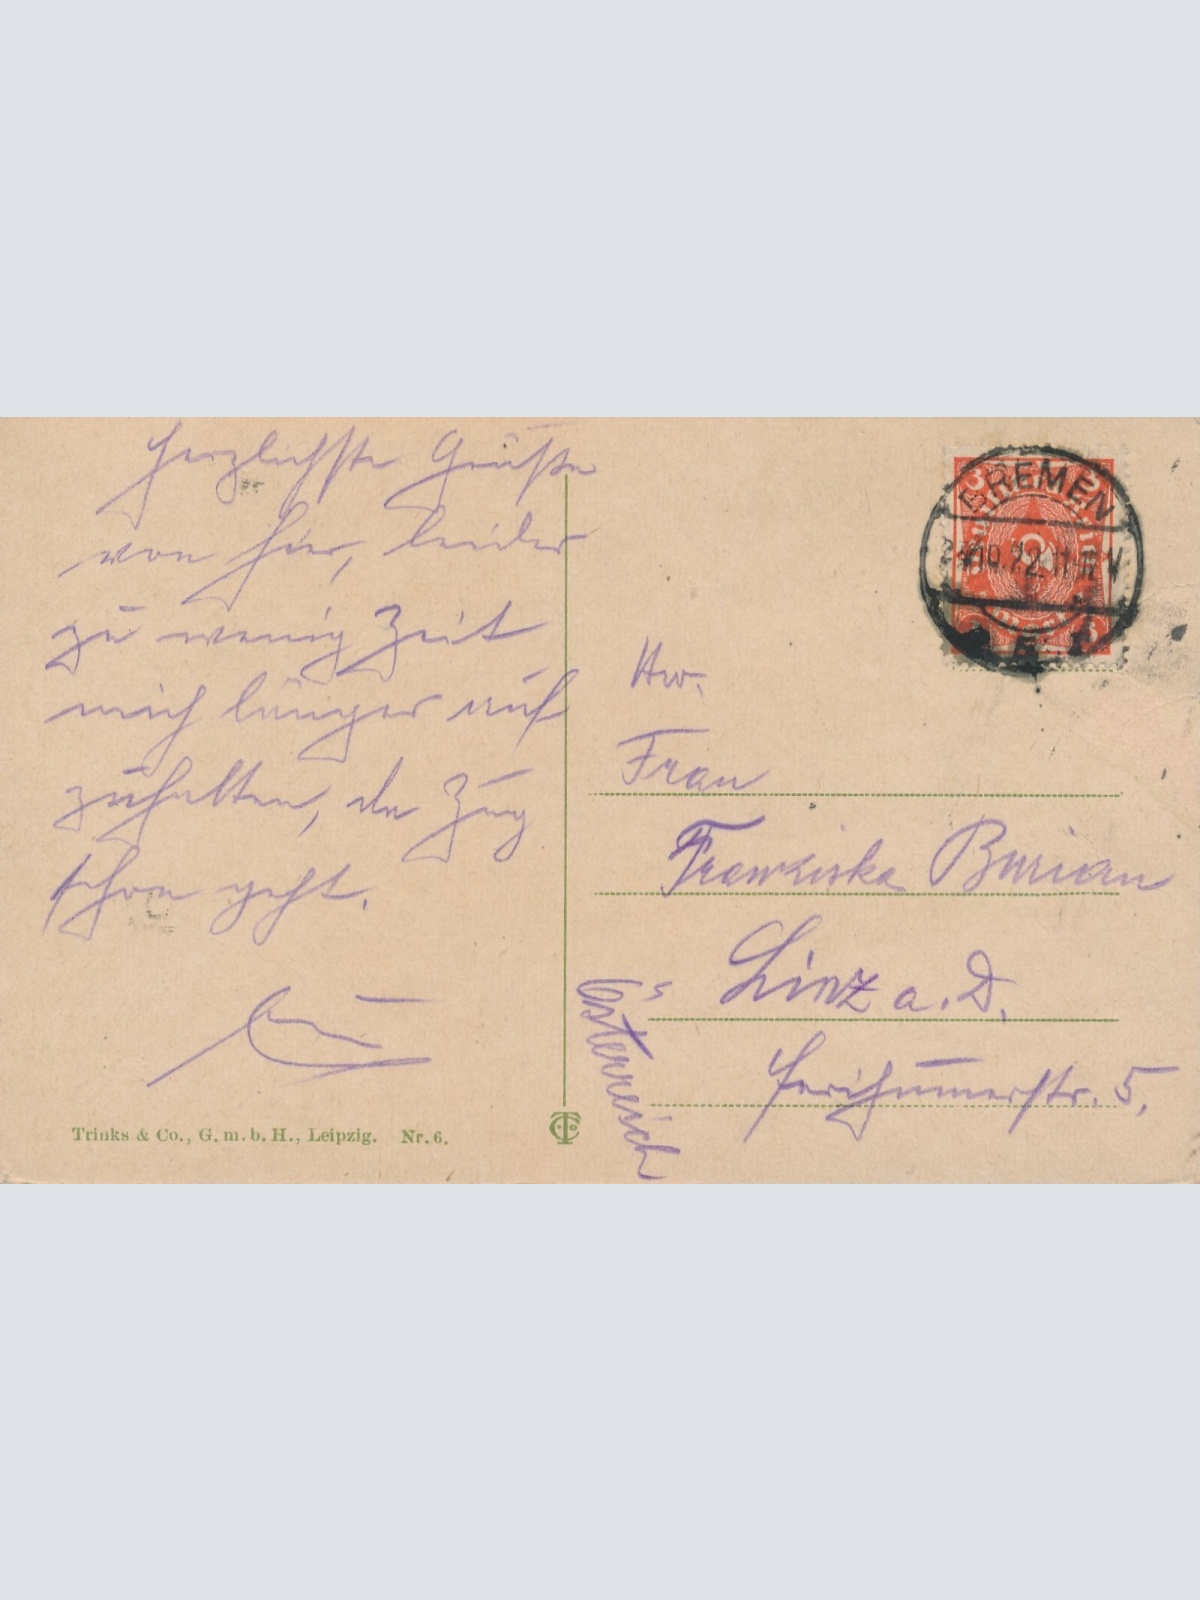 Herzlichste Grüße
von hier, leider
zu wenig Zeit
mich länger auf
zuhalten, da Zug
schon geht.
Trinks & Co., G. m. b. H., Leipzig. Nr. 6.
BREMEN
10.22.11-12 V
Frau
Franziska Burian
Linz a. D.
5.
Österreich